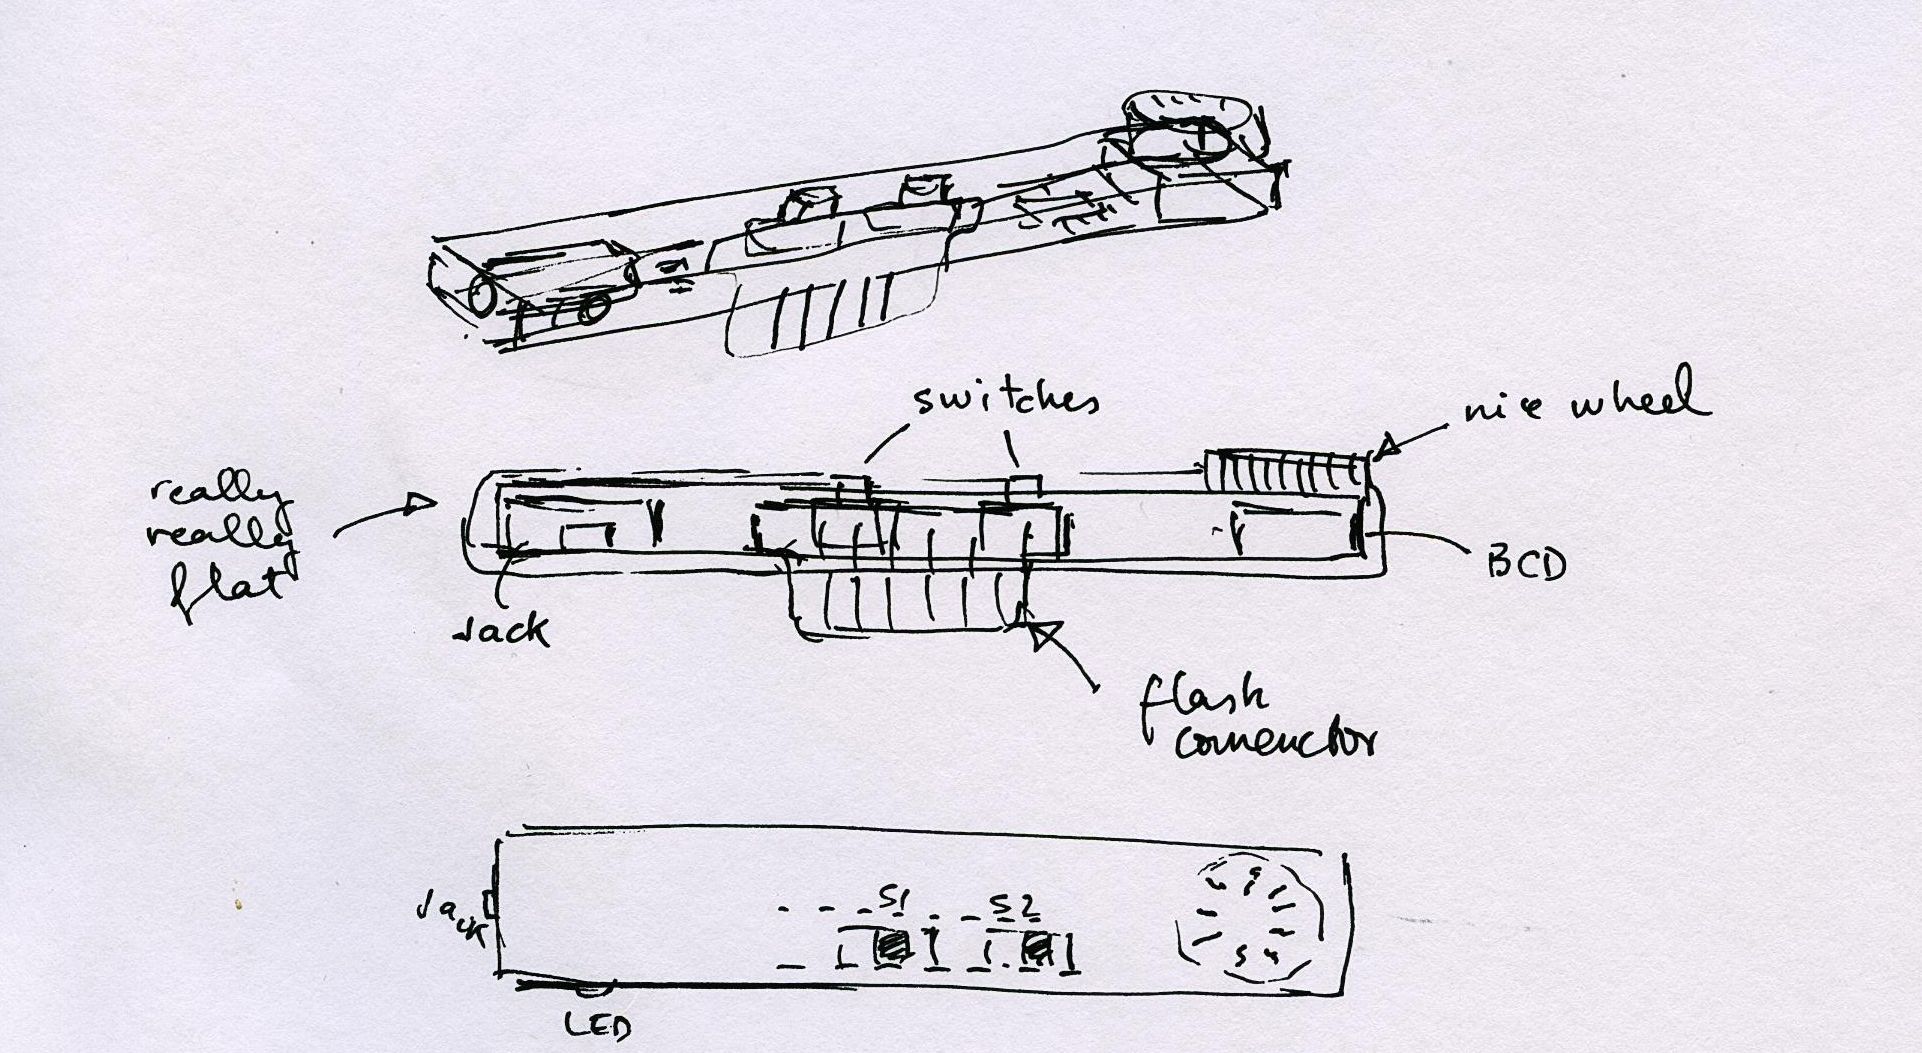 switches
nice wheel
really
really
flat
BCD
Jack
flash
connector
S1 S2
Jack
LED